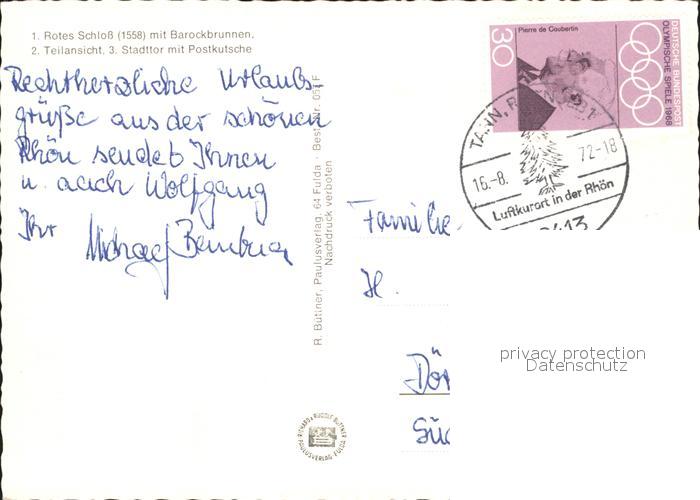 1. Rotes Schloß (1558) mit Barockbrunnen,
2. Teilansicht, 3. Stadttor mit Postkutsche
Rechtherzliche Urlaubs-
grüße aus der schönen
Rhön sendet Ihnen
u. auch Wolfgang
Ihr Michael
R. Büttner, Paulusverlag, 64 Fulda · Best.-Nr.
Nachdruck verboten
RICHARD + RUDOLF BÜTTNER
PAULUSVERLAG FULDA
Pierre de Coubertin
30
DEUTSCHE BUNDESPOST
OLYMPISCHE SPIELE 1968
TANN,
16.-8.
72-18
Luftkurort in der Rhön
6413
Familie
H.
Dör
Süd
privacy protection
Datenschutz